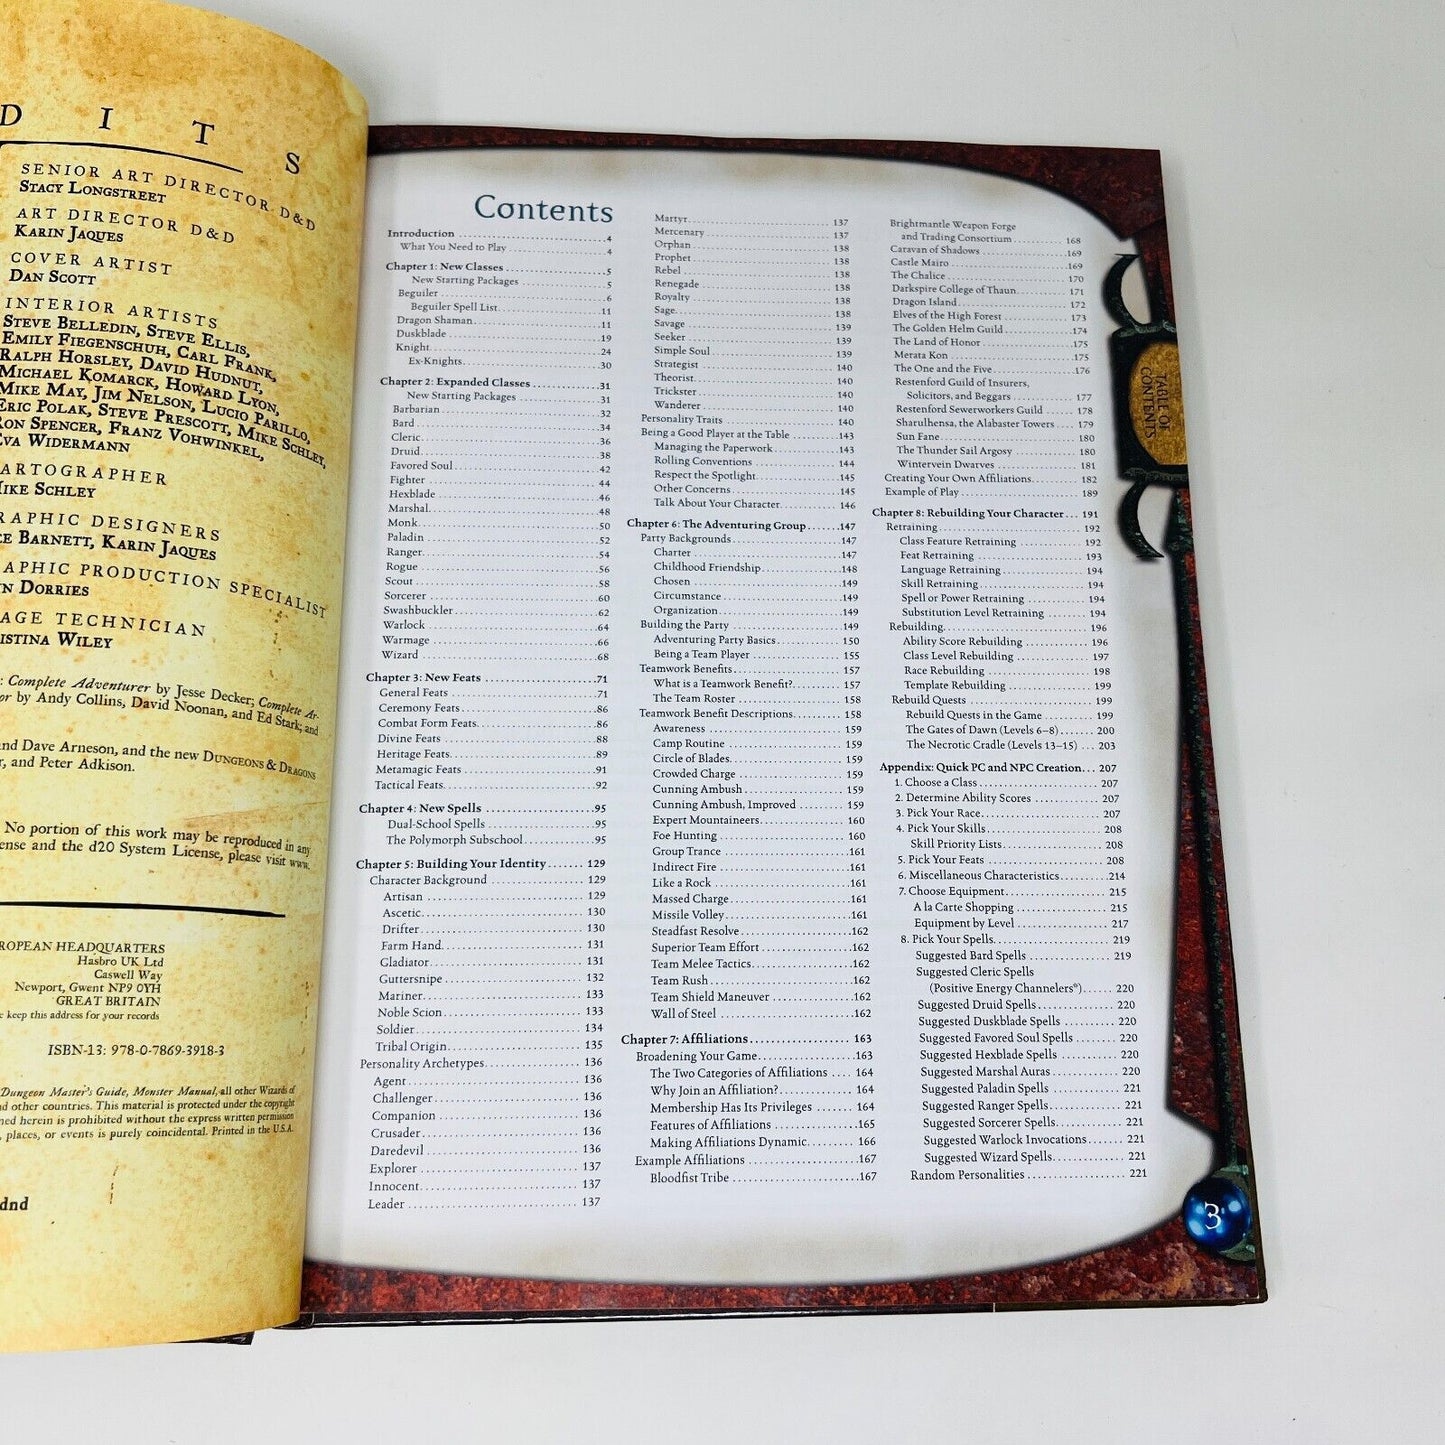 D I T S
SENIOR ART DIRECTOR D&D
STACY LONGSTREET
ART DIRECTOR D&D
KARIN JAQUES
COVER ARTIST
DAN SCOTT
INTERIOR ARTISTS
STEVE BELLEDIN, STEVE ELLIS,
EMILY FIEGENSCHUH, CARL FRANK,
RALPH HORSLEY, DAVID HUDNUT,
MICHAEL KOMARCK, HOWARD LYON,
MIKE MAY, JIM NELSON, LUCIO PARILLO,
ERIC POLAK, STEVE PRESCOTT, MIKE SCHLEY,
RON SPENCER, FRANZ VOHWINKEL,
EVA WIDERMANN
ARTOGRAPHER
MIKE SCHLEY
RAPHIC DESIGNERS
EE BARNETT, KARIN JAQUES
APHIC PRODUCTION SPECIALIST
N DORRIES
AGE TECHNICIAN
ISTINA WILEY
: Complete Adventurer by Jesse Decker; Complete Ar-
or by Andy Collins, David Noonan, and Ed Stark; and
and Dave Arneson, and the new DUNGEONS & DRAGONS
r, and Peter Adkison.
No portion of this work may be reproduced in any
ense and the d20 System License, please visit www.
ROPEAN HEADQUARTERS
Hasbro UK Ltd
Caswell Way
Newport, Gwent NP9 0YH
GREAT BRITAIN
e keep this address for your records
ISBN-13: 978-0-7869-3918-3
Dungeon Master's Guide, Monster Manual, all other Wizards of
nd other countries. This material is protected under the copyright
ned herein is prohibited without the express written permission
, places, or events is purely coincidental. Printed in the U.S.A.
dnd
Contents
Introduction 4
What You Need to Play 4
Chapter 1: New Classes 5
New Starting Packages 5
Beguiler 6
Beguiler Spell List 11
Dragon Shaman 11
Duskblade 19
Knight 24
Ex-Knights 30
Chapter 2: Expanded Classes 31
New Starting Packages 31
Barbarian 32
Bard 34
Cleric 36
Druid 38
Favored Soul 42
Fighter 44
Hexblade 46
Marshal 48
Monk 50
Paladin 52
Ranger 54
Rogue 56
Scout 58
Sorcerer 60
Swashbuckler 62
Warlock 64
Warmage 66
Wizard 68
Chapter 3: New Feats 71
General Feats 71
Ceremony Feats 86
Combat Form Feats 86
Divine Feats 88
Heritage Feats 89
Metamagic Feats 91
Tactical Feats 92
Chapter 4: New Spells 95
Dual-School Spells 95
The Polymorph Subschool 95
Chapter 5: Building Your Identity 129
Character Background 129
Artisan 129
Ascetic 130
Drifter 130
Farm Hand 131
Gladiator 131
Guttersnipe 132
Mariner 133
Noble Scion 133
Soldier 134
Tribal Origin 135
Personality Archetypes 136
Agent 136
Challenger 136
Companion 136
Crusader 136
Daredevil 136
Explorer 137
Innocent 137
Leader 137
Martyr 137
Mercenary 137
Orphan 138
Prophet 138
Rebel 138
Renegade 138
Royalty 138
Sage 138
Savage 139
Seeker 139
Simple Soul 139
Strategist 140
Theorist 140
Trickster 140
Wanderer 140
Personality Traits 140
Being a Good Player at the Table 143
Managing the Paperwork 143
Rolling Conventions 144
Respect the Spotlight 145
Other Concerns 145
Talk About Your Character 146
Chapter 6: The Adventuring Group 147
Party Backgrounds 147
Charter 147
Childhood Friendship 148
Chosen 149
Circumstance 149
Organization 149
Building the Party 149
Adventuring Party Basics 150
Being a Team Player 155
Teamwork Benefits 157
What is a Teamwork Benefit? 157
The Team Roster 158
Teamwork Benefit Descriptions 158
Awareness 159
Camp Routine 159
Circle of Blades 159
Crowded Charge 159
Cunning Ambush 159
Cunning Ambush, Improved 159
Expert Mountaineers 160
Foe Hunting 160
Group Trance 161
Indirect Fire 161
Like a Rock 161
Massed Charge 161
Missile Volley 161
Steadfast Resolve 162
Superior Team Effort 162
Team Melee Tactics 162
Team Rush 162
Team Shield Maneuver 162
Wall of Steel 162
Chapter 7: Affiliations 163
Broadening Your Game 163
The Two Categories of Affiliations 164
Why Join an Affiliation? 164
Membership Has Its Privileges 164
Features of Affiliations 165
Making Affiliations Dynamic 166
Example Affiliations 167
Bloodfist Tribe 167
Brightmantle Weapon Forge
and Trading Consortium 168
Caravan of Shadows 169
Castle Mairo 169
The Chalice 170
Darkspire College of Thaun 171
Dragon Island 172
Elves of the High Forest 173
The Golden Helm Guild 174
The Land of Honor 175
Merata Kon 175
The One and the Five 176
Restenford Guild of Insurers,
Solicitors, and Beggars 177
Restenford Sewerworkers Guild 178
Sharulhensa, the Alabaster Towers 179
Sun Fane 180
The Thunder Sail Argosy 180
Wintervein Dwarves 181
Creating Your Own Affiliations 182
Example of Play 189
Chapter 8: Rebuilding Your Character 191
Retraining 192
Class Feature Retraining 192
Feat Retraining 193
Language Retraining 194
Skill Retraining 194
Spell or Power Retraining 194
Substitution Level Retraining 194
Rebuilding 196
Ability Score Rebuilding 196
Class Level Rebuilding 197
Race Rebuilding 198
Template Rebuilding 199
Rebuild Quests 199
Rebuild Quests in the Game 199
The Gates of Dawn (Levels 6–8) 200
The Necrotic Cradle (Levels 13–15) 203
Appendix: Quick PC and NPC Creation 207
1. Choose a Class 207
2. Determine Ability Scores 207
3. Pick Your Race 207
4. Pick Your Skills 208
Skill Priority Lists 208
5. Pick Your Feats 208
6. Miscellaneous Characteristics 214
7. Choose Equipment 215
A la Carte Shopping 215
Equipment by Level 217
8. Pick Your Spells 219
Suggested Bard Spells 219
Suggested Cleric Spells
(Positive Energy Channelers*) 220
Suggested Druid Spells 220
Suggested Duskblade Spells 220
Suggested Favored Soul Spells 220
Suggested Hexblade Spells 220
Suggested Marshal Auras 220
Suggested Paladin Spells 221
Suggested Ranger Spells 221
Suggested Sorcerer Spells 221
Suggested Warlock Invocations 221
Suggested Wizard Spells 221
Random Personalities 221
TABLE OF
CONTENTS
3